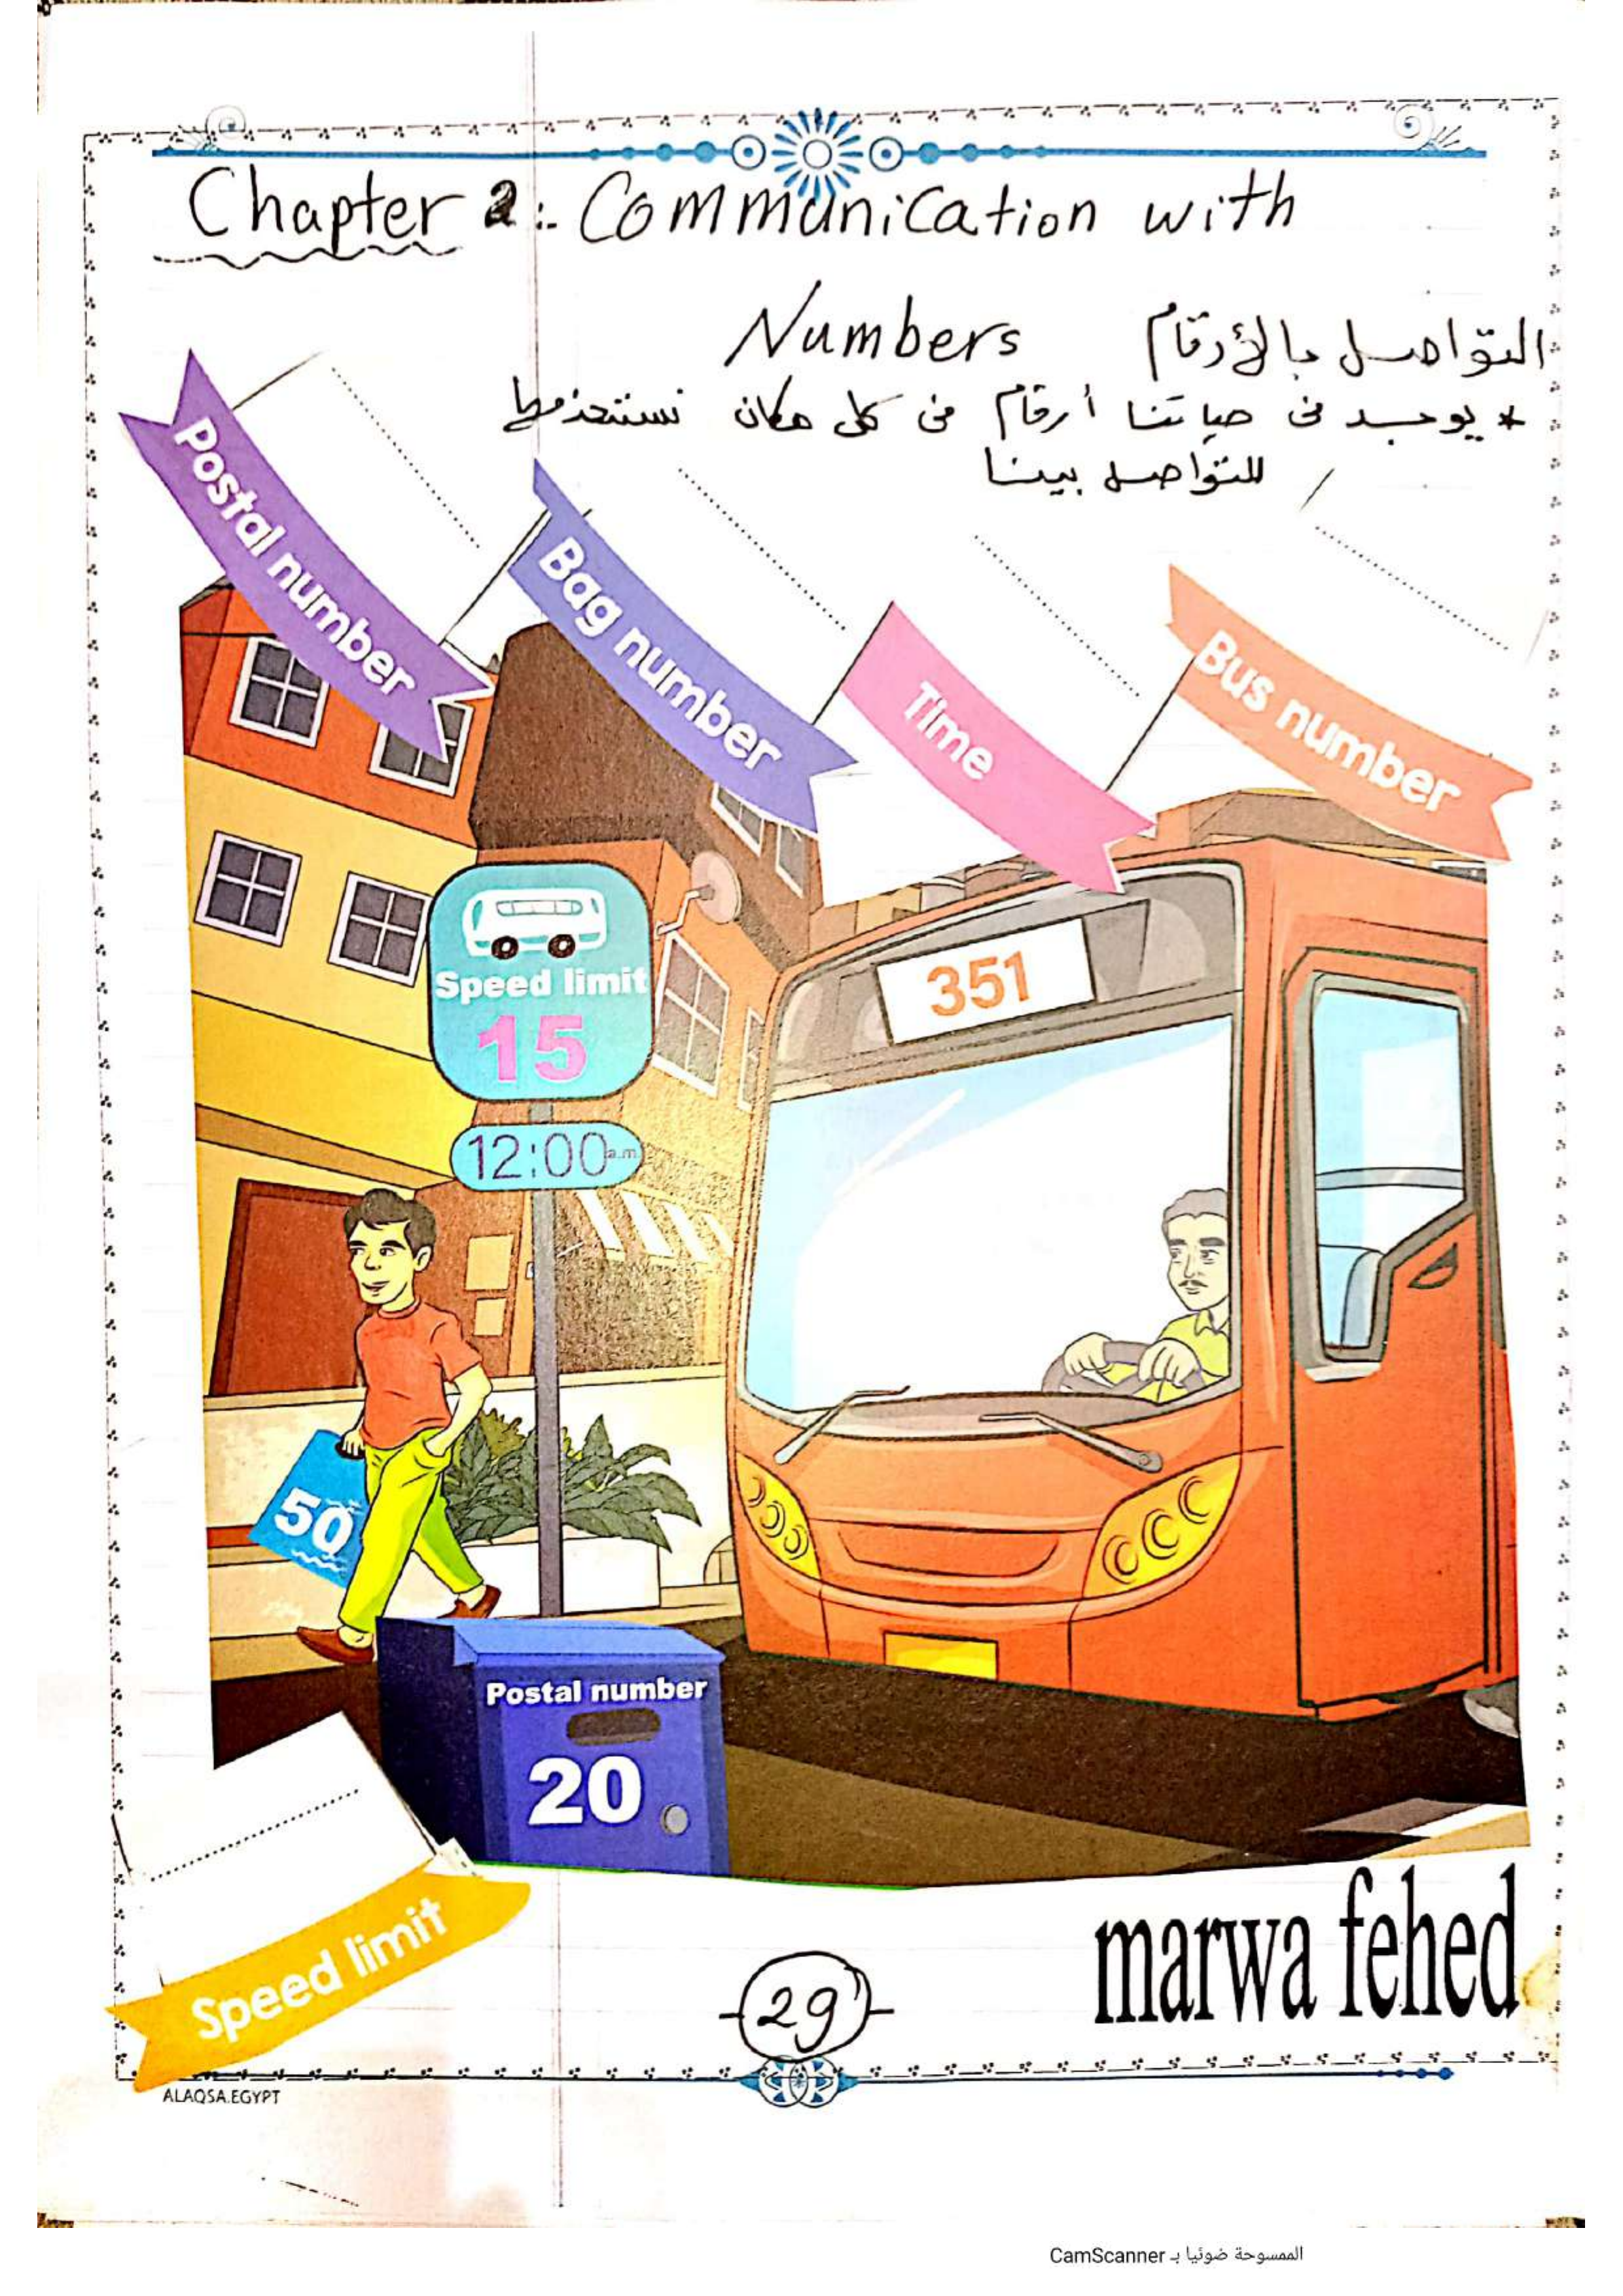 Chapter 2: Communication with
Numbers التواصل بالأرقام
* يوجد فى حياتنا أرقام فى كل مكان نستخدمها
للتواصل بيننا
Postal number
Bag number
Time
Bus number
351
Speed limit
15
12:00 a.m.
50
Postal number
20
Speed limit
marwa fehed
29
ALAQSA.EGYPT
الممسوحة ضوئيا بـ CamScanner